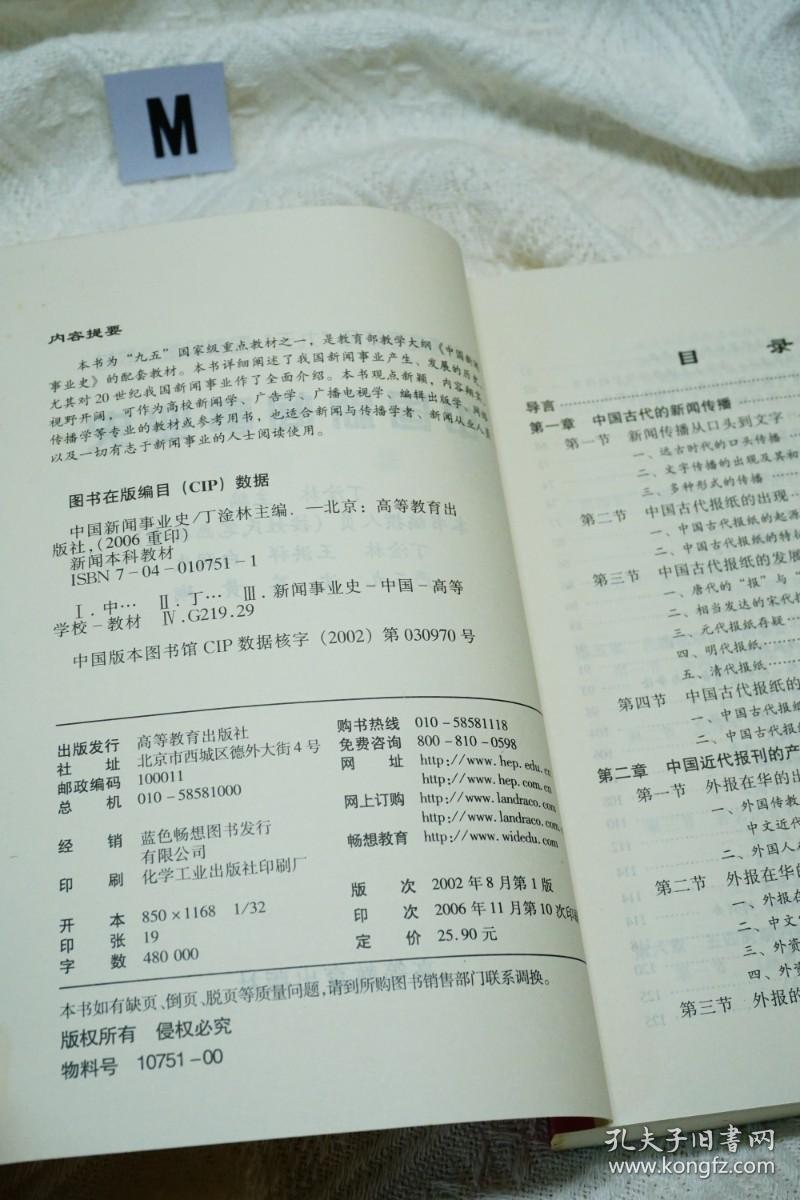 M
内容提要
本书为“九五”国家级重点教材之一，是教育部教学大纲《中国新闻
事业史》的配套教材。本书详细阐述了我国新闻事业产生、发展的历史，
尤其对20世纪我国新闻事业作了全面介绍。本书观点新颖，内容翔实，
视野开阔，可作为高校新闻学、广告学、广播电视学、编辑出版学、网络
传播学等专业的教材或参考用书，也适合新闻与传播学者、新闻从业人员
以及一切有志于新闻事业的人士阅读使用。
图书在版编目（CIP）数据
中国新闻事业史/丁淦林主编．—北京：高等教育出
版社，（2006 重印）
新闻本科教材
ISBN 7-04-010751-1
Ⅰ.中… Ⅱ.丁… Ⅲ.新闻事业-中国-高等
学校-教材 Ⅳ.G219.29
中国版本图书馆 CIP 数据核字（2002）第 030970 号
出版发行 高等教育出版社
社 址 北京市西城区德外大街4号
邮政编码 100011
总 机 010-58581000
经 销 蓝色畅想图书发行
有限公司
印 刷 化学工业出版社印刷厂
开 本 850×1168 1/32
印 张 19
字 数 480 000
购书热线 010-58581118
免费咨询 800-810-0598
网 址 http://www.hep.edu.cn
http://www.hep.com.cn
网上订购 http://www.landraco.com
http://www.landraco.com.
畅想教育 http://www.widedu.com
版 次 2002年8月第1版
印 次 2006年11月第10次印刷
定 价 25.90元
本书如有缺页、倒页、脱页等质量问题，请到所购图书销售部门联系调换。
版权所有 侵权必究
物料号 10751-00
目 录
导言
第一章 中国古代的新闻传播
第一节 新闻传播从口头到文字
一、远古时代的口头传播
二、文字传播的出现及其初
三、多种形式的传播
第二节 中国古代报纸的出现
一、中国古代报纸的起源
二、中国古代报纸的特征
第三节 中国古代报纸的发展
一、唐代的“报”与“
二、相当发达的宋代报
三、元代报纸存疑
四、明代报纸
五、清代报纸
第四节 中国古代报纸的
一、中国古代报纸
二、中国古代报
第二章 中国近代报刊的产
第一节 外报在华的出
一、外国传教
中文近代
二、外国人在
第二节 外报在华的
一、外报在
二、中文
三、外资
四、外资
第三节 外报的
孔夫子旧书网
www.kongfz.com